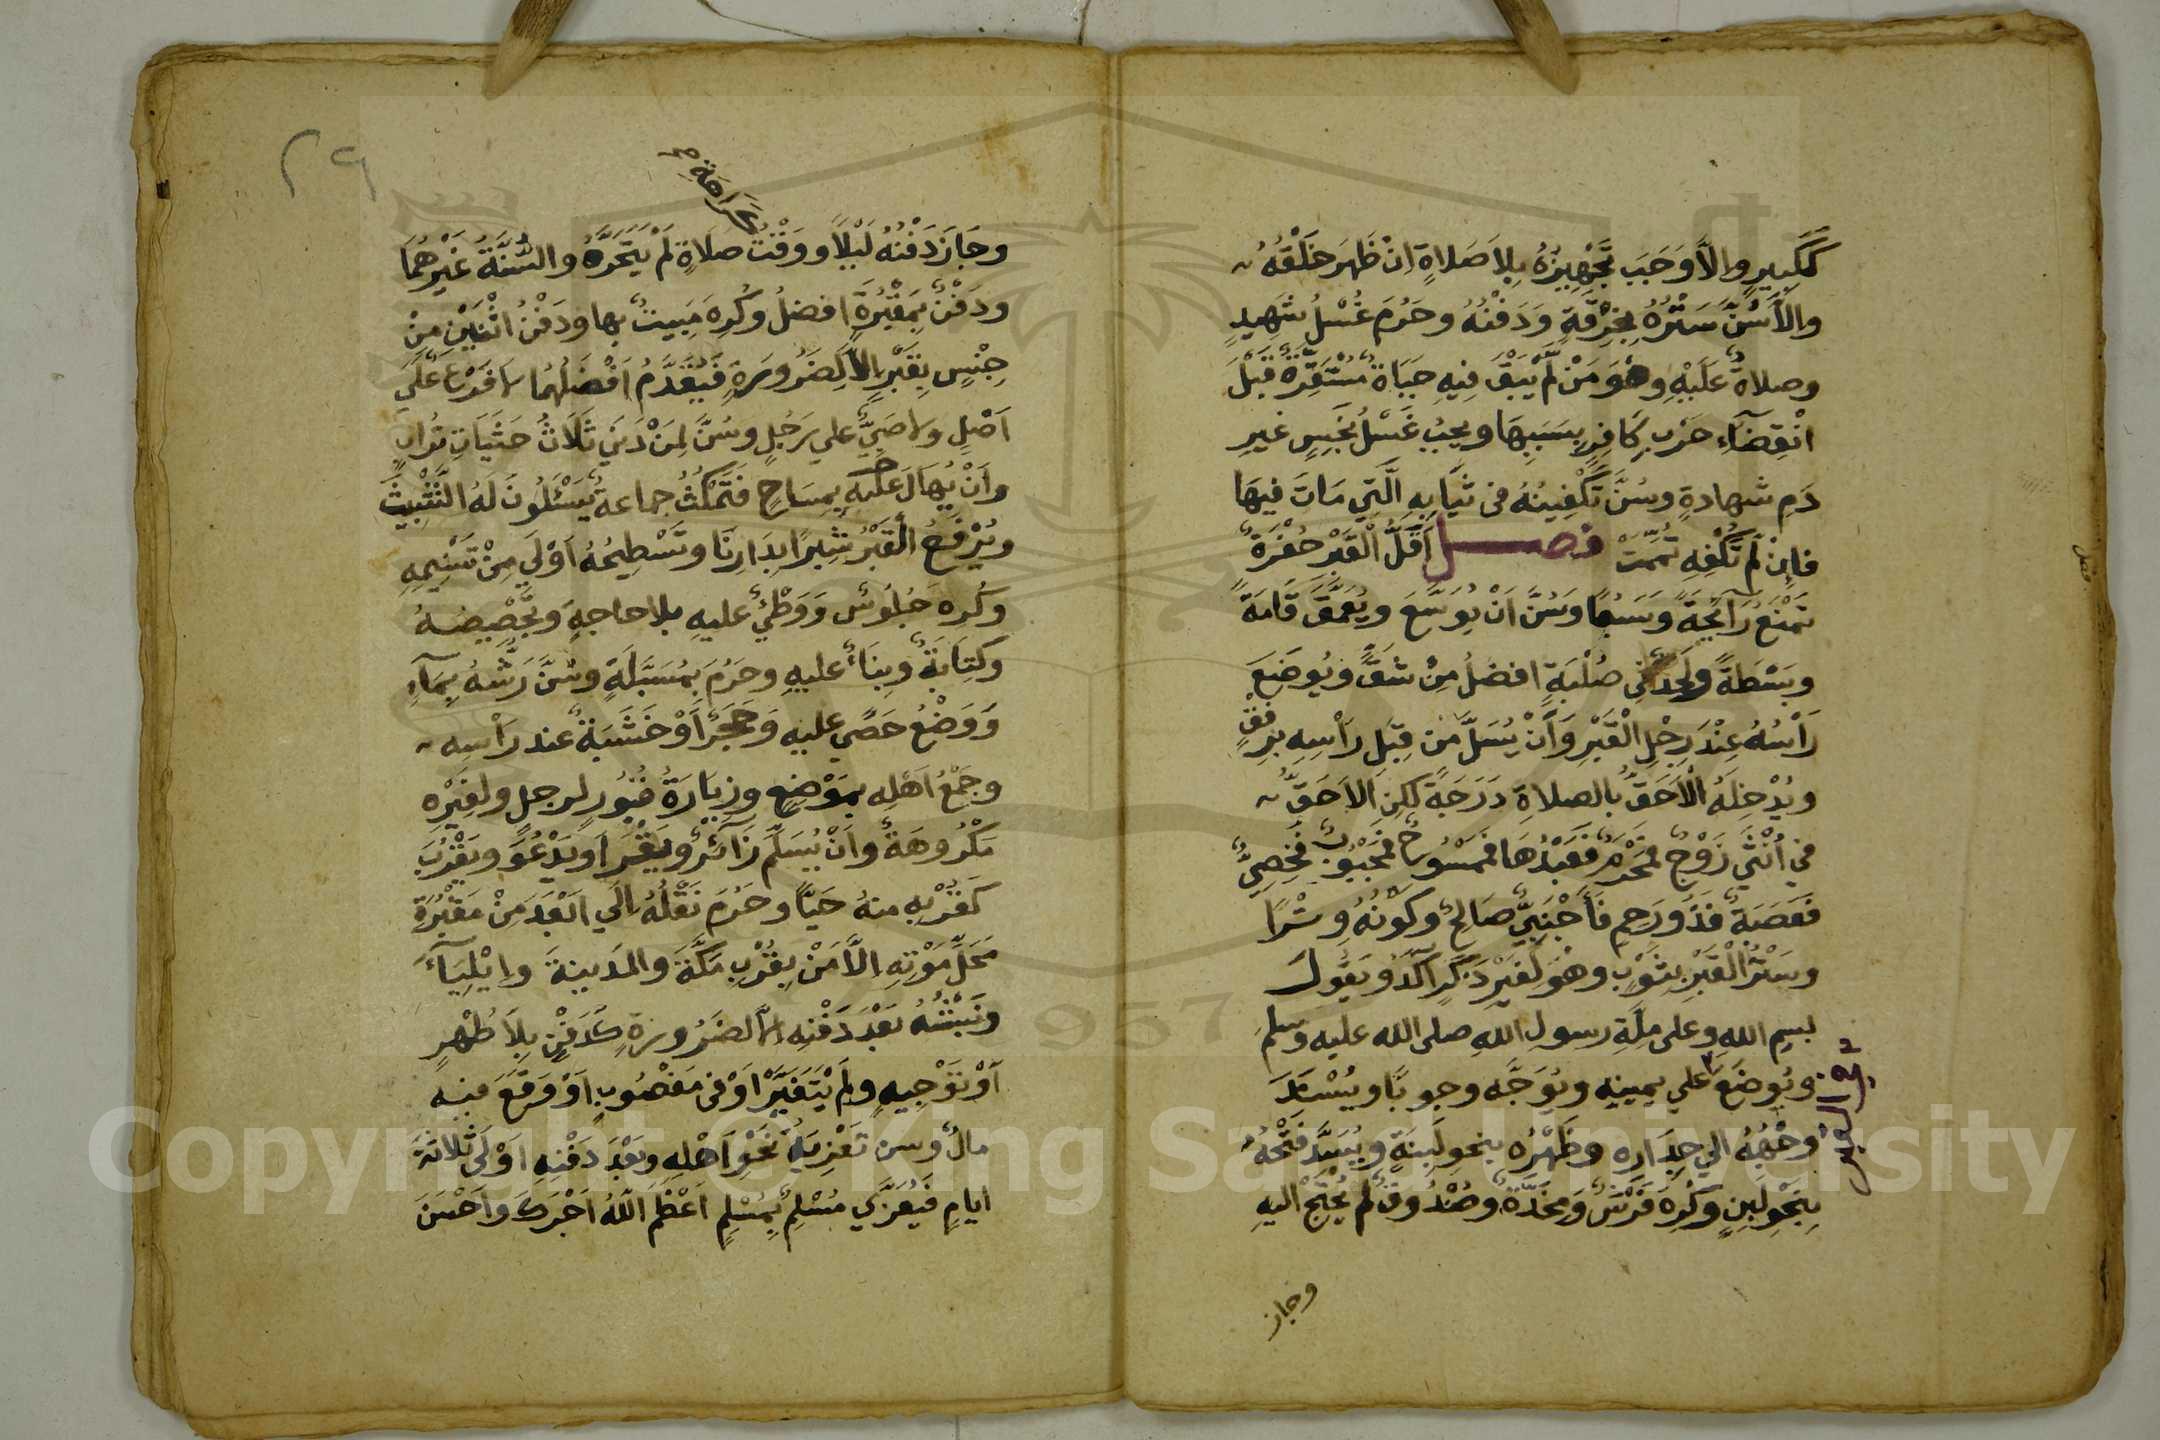 كَكَبِيرٍ وإلاَّ وَجَبَ تَجْهِيزُهُ بِلاَ صَلاةٍ اِنْ ظَهَرَ خَلْقُهُ
وإلاَّ سُنَّ سَتْرُهُ بِخِرْقَةٍ وَدَفْنُهُ وحَرُمَ غُسْلُ شَهِيدٍ
وصلاةٌ عَلَيْهِ وهُوَ مَنْ لَمْ يَبْقَ فِيهِ حَيَاةٌ مُسْتَقِرَّةٌ قَبْلَ
انْقِضَآءِ حَرْبِ كَافِرٍ بِسَبَبِهَا ويجبُ غَسْلُ نَجَسٍ غيرِ
دَمِ شهادةٍ وسُنَّ تَكْفِينُهُ فى ثِيَابِهِ الَّتِي مَاتَ فِيهَا
فإنْ لَمْ تَكْفِهِ تُمِّمَتْ فصل اَقَلُّ الْقَبْرِ حُفْرَةٌ
تَمْنَعُ رَائِحَةً وَسَبُعًا وَسُنَّ اَنْ يُوَسَّعَ ويُعَمَّقَ قَامَةً
وبَسْطَةً ولَحْدٌ فِي صُلْبَةٍ افضلُ مِنْ شَقٍّ ويُوضَعَ
رَاْسُهُ عِنْدَ رِجْلِ الْقَبْرِ وَأَنْ يُسَلَّ مِنْ قِبَلِ رَاْسِهِ بِرِفْقٍ
ويُدْخِلَهُ الْاَحَقُّ بالصلاةِ دَرَجَةً لكنِ الاَحَقُّ
في اُنْثَى زَوْجٌ فَمَحْرَمٌ فَعَبْدُهَا فَمَمْسُوحٌ فَمَجْبُوبٌ فَخَصِيٌّ
فَعَصَبَةٌ فَذُو رَحِمٍ فَأَجْنَبِيٌّ صَالِحٌ وكَوْنُهُ وِتْرًا
وسَتْرُ الْقَبْرِ بِثَوْبٍ وهُوَ لِغَيْرِ ذَكَرٍ آكَدُ ويَقُولَ
بسمِ اللهِ وعلى مِلَّةِ رسولِ اللهِ صلى الله عليه وسلم
ويُوضَعَ علي يمينِهِ ويُوَجَّه وجوبًا ويُسْنَدَ
وَجْهُهُ الي جِدَارِه وظَهْرُه بنحوِ لَبِنَةٍ ويُسَدَّ فَتْحُهُ
بِنَحْوِ لَبِنٍ وَكُرِهَ فَرْشٌ وَمِخَدَّةٌ وصُنْدُوقٌ لَمْ يُحْتَجْ اليهِ
وجاز
فصل
في القبر
٢٩
كَرَاهَةٍ صح
وجَازَ دَفْنُهُ لَيْلاً ووَقْتَ صلاةٍ لَمْ يَتَحَرَّهُ والسُّنَّةُ غَيْرُهُمَا
ودَفْنٌ بِمَقْبُرَةٍ افضلُ وكُرِهَ مَبِيتٌ بها ودَفْنُ اثْنَيْنِ مِنْ
جِنْسٍ بِقَبْرٍ إلاَّ لِضَرُورَةٍ فَيُقَدَّمُ اَفْضَلُهُمَا لا فَرْعٌ عَلَى
اَصْلٍ ولا صَبِيٌّ علي رَجُلٍ وسُنَّ لِمَنْ دَنَى ثَلَاثُ حَثَيَاتِ تُرابٍ
وأَنْ يُهَالَ عَلَيْهِ بِمِسَاحٍ فَتَمْكُثُ جماعةٌ يَسْئَلُونَ لَهُ التَّثْبِيتَ
ويُرْفَعُ القَبْرُ شِبْرًا بِدَارِنَا وتَسْطِيحُهُ اَوْلَى مِنْ تَسْنِيمِهِ
وكُرِهَ جُلُوسٌ وَوَطْئٌ عليهِ بلا حاجةٍ وتَجْصِيصُهُ
وكِتَابَةٌ وبِنَاءٌ عليهِ وحَرُمَ بِمُسَبَّلَةٍ وسُنَّ رَشُّهُ بِمَآءٍ
وَوَضْعُ حَصًى عليهِ وَحَجَرٍ اَوْ خَشَبَةٍ عند رَاْسِه
وجَمْعُ اَهْلِه بمَوْضِعٍ وزِيَارَةُ قُبُورٍ لرجلٍ ولغَيْرِه
مَكْرُوهَةٌ وأَنْ يُسَلِّمَ زَآئِرٌ ويَقْرَأَ ويَدْعُوَ ويَقْرُبَ
كَقُرْبِهِ منهُ حَيًّا وحَرُمَ نَقْلُهُ اِلَى اَبْعَدَ مِنْ مَقْبُرَةِ
مَحَلِّ مَوْتِهِ اِلاَّ مَنْ بِقُرْبِ مَكَّةَ والمَدينةَ وإيْلِيَآءَ
ونَبْشُهُ بَعْدَ دَفْنِهِ إلاَّ لضَرُورَةٍ كَدَفْنٍ بِلاَ طُهْرٍ
اَوْ تَوْجِيهٍ ولَمْ يَتَغَيَّرْ اَوْ فى مَغْصُوبٍ اَوْ وَقَعَ فيهِ
مالٌ وسن تَعْزِيَةُ نَحْوِ اَهْلِهِ وبَعْدَ دَفْنِهِ اَوْلَى ثَلاثَةَ
ايامٍ فَيُعَزَّي مُسْلِمٌ بِمُسْلِمٍ اَعْظَمَ اللَّهُ اَجْرَكَ وَاَحْسَنَ